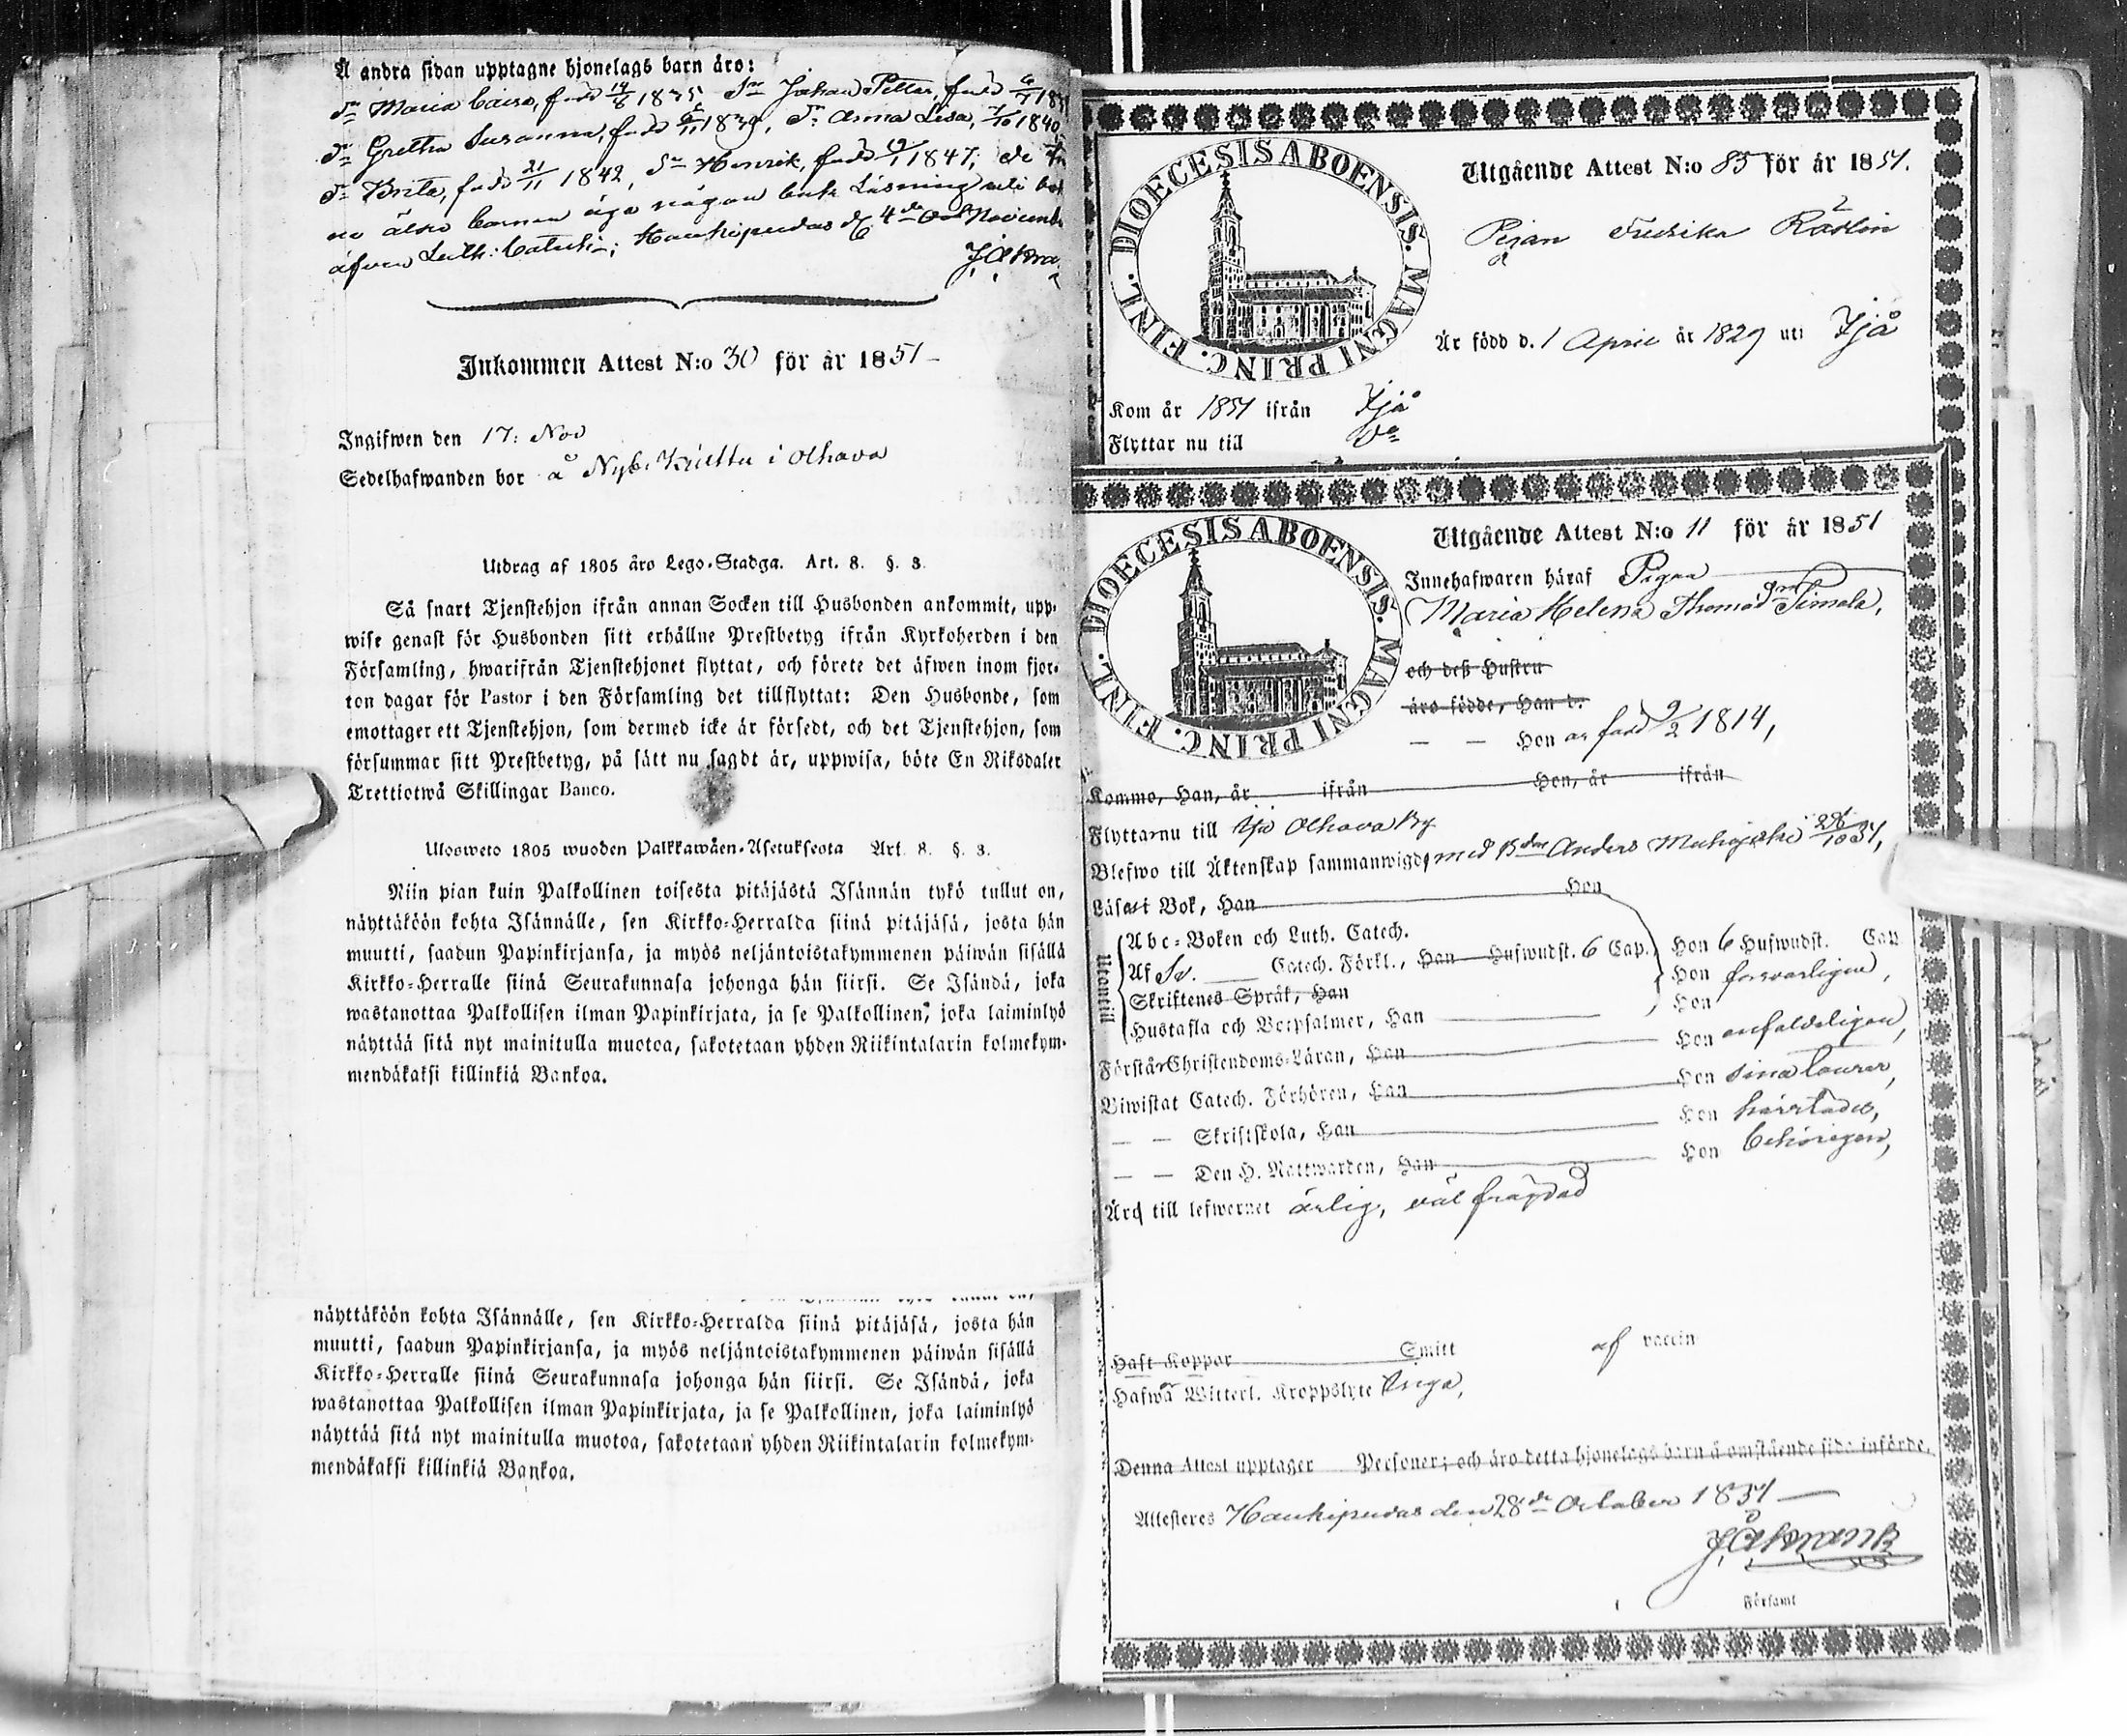 Å andra sidan upptagne hjonelags barn äro:
Dr Maria Caisa, född 14/8 1835 Sn Johan Petter, född 6/7 183
Dr Gretha Susanna, född 11 1839, Dr Anna Lisa, 7/10 1840,
Dr Brita, född 21/11 1842, Sn Henrik, född 19/1 1847; de
äldre barnen äga någon enk Läsning uti
äfven Luth: Catech:; Haukipudas d. 4de November
Inkommen Attest N:o 30 för år 1851-
Ingifwen den 17: Nov
Sedelhafwanden bor å Nyb: i Olhava
Utdrag af 1805 åro Lego-Stadga. Art. 8. §. 3.
Så snart Tjenstehjon ifrån annan Socken till Husbonden ankommit, upp-
wise genast för Husbonden sitt erhållne Prestbetyg ifrån Kyrkoherden i den
Församling, hwarifrån Tjenstehjonet flyttat, och förete det äfwen inom fjor-
ton dagar för Pastor i den Församling det tillflyttat: Den Husbonde, som
emottager ett Tjenstehjon, som dermed icke är försedt, och det Tjenstehjon, som
försummar sitt Prestbetyg, på sätt nu sagdt är, uppwisa, böte En Riksdaler
Trettiotwå Skillingar Banco.
Ulosweto 1805 wuoden Palkkawäen-Asetuksesta Art. 8. §. 3.
Niin pian kuin Palkollinen toisesta pitäjästä Isännän tykö tullut on,
näyttäköön kohta Isännälle, sen Kirkko-Herralda siinä pitäjäsä, josta hän
muutti, saadun Papinkirjansa, ja myös neljäntoistakymmenen päiwän sisällä
Kirkko-Herralle siinä Seurakunnasa johonga hän siirsi. Se Isändä, joka
wastanottaa Palkollisen ilman Papinkirjata, ja se Palkollinen, joka laiminlyö
näyttää sitä nyt mainitulla muotoa, sakotetaan yhden Riikintalarin kolmekym-
mendäkaksi killinkiä Bankoa.
näyttäköön kohta Isännälle, sen Kirkko-Herralda siinä pitäjäsä, josta hän
muutti, saadun Papinkirjansa, ja myös neljäntoistakymmenen päiwän sisällä
Kirkko-Herralle siinä Seurakunnasa johonga hän siirsi. Se Isändä, joka
wastanottaa Palkollisen ilman Papinkirjata, ja se Palkollinen, joka laiminlyö
näyttää sitä nyt mainitulla muotoa, sakotetaan yhden Riikintalarin kolmekym-
mendäkaksi killinkiä Bankoa.
DIOECESIS ABOENSIS. MAGNI PRINC. FINL.
Utgående Attest N:o 85 för år 1851.
Pigan Fredrika Rädlin
Är född d. 1 April år 1829 uti Ijå
Kom år 1851 ifrån Ijå
Flyttar nu till Do
DIOECESIS ABOENSIS. MAGNI PRINC. FINL.
Utgående Attest N:o 11 för år 1851
Innehafwaren häraf Pigan
Maria Helena Thomasdr Simola,
och dess Hustru
äro födde, Han d.
— — Hon är född 9/2 1814,
Kommo, Han, år ifrån Hon, år ifrån
Flyttar nu till Ijo Olhava By
Blefwo till Äktenskap sammanwigde med Bdn Anders 26/10 51,
Läsart Bok, Han Hon
Utontill
Abc-Boken och Luth. Catech.
Af Sv. Catech. Förkl., Han Hufwudst. 6 Cap. Hon 6 Hufwudst. Cap
Skriftenes Språk, Han Hon försvarligen,
Hustafla och Botpsalmer, Han Hon
Förstår Christendoms-Läran, Han Hon enfaldeligen,
Biwistat Catech. Förhören, Han Hon sina Tourer,
— — Skriftskola, Han Hon härstädes,
— — Den H. Nattwarden, Han Hon behörigen,
Äro till lefwernet ärlig, väl frägdad
Haft Koppor Smitt af vaccin
Hafwa Witterl. Kroppslyte Inga,
Denna Attest upptager Personer; och äro detta hjonelags barn å omstående sida införde.
Attesteres Haukipudas den 28de October 1851
Församl